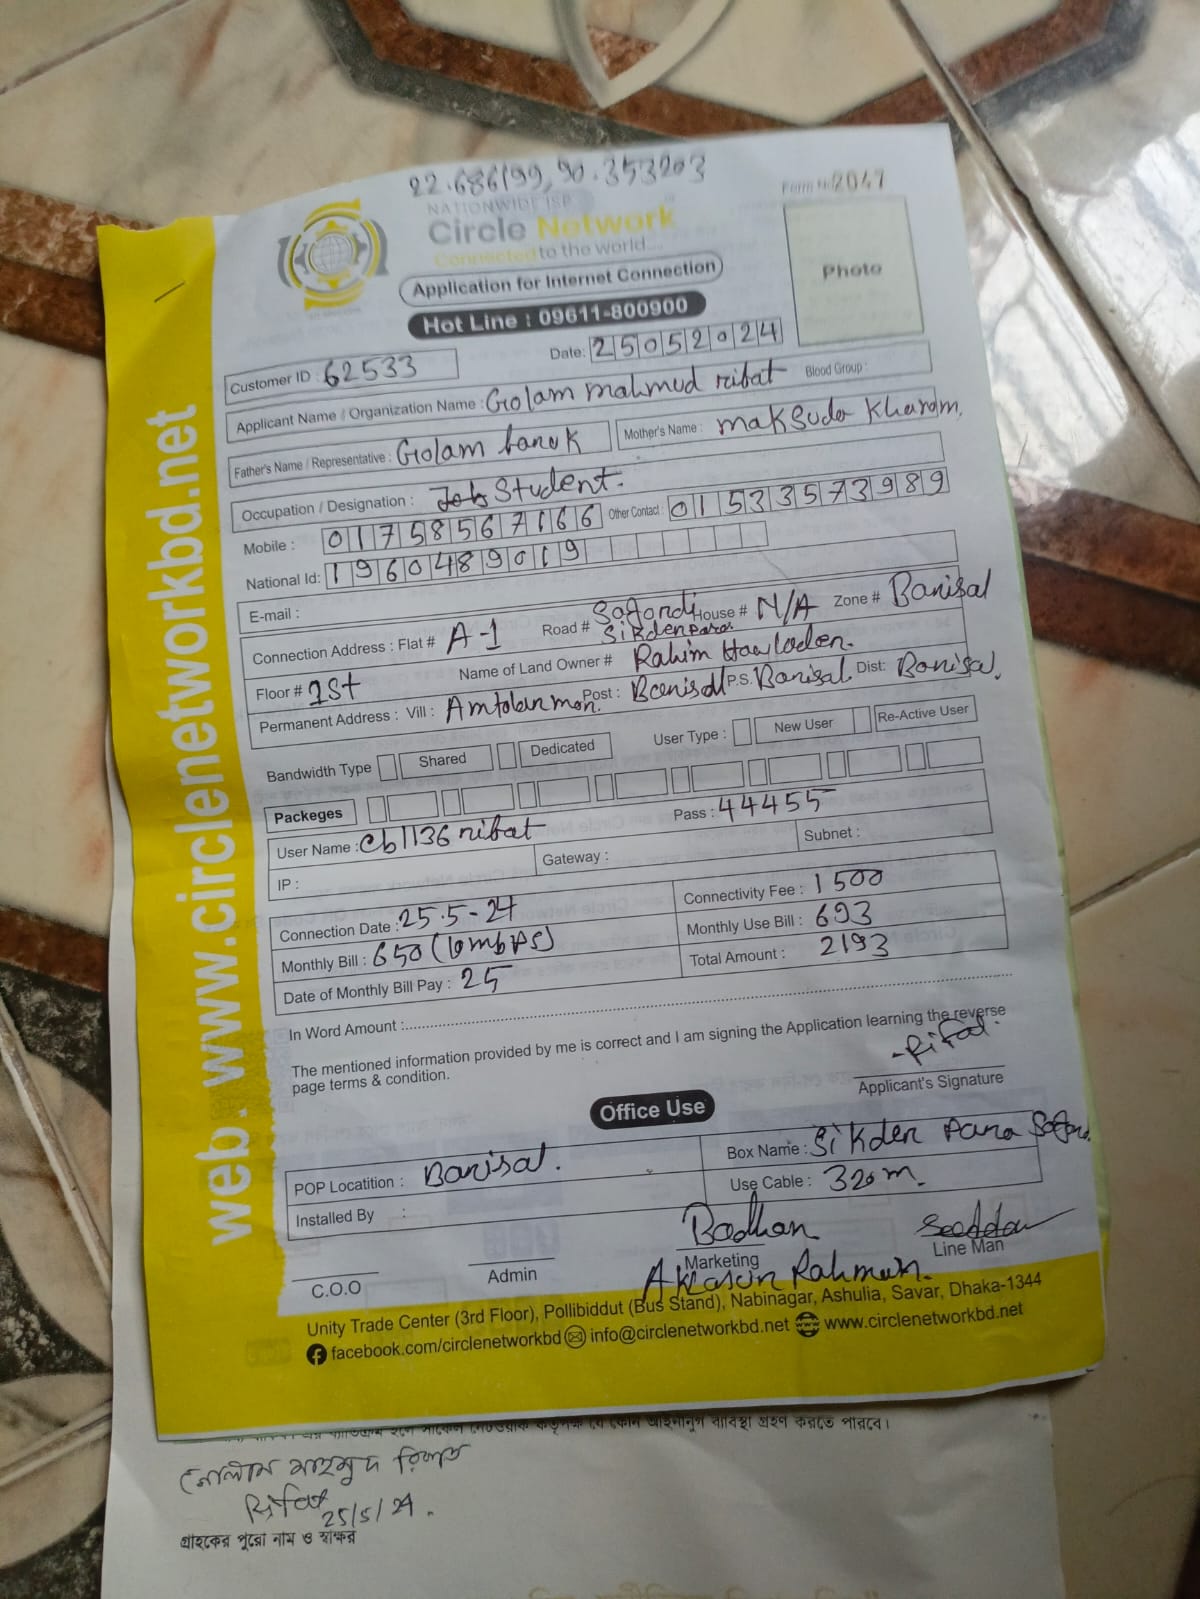 22.686199, 90.353203
Form No 2047
NATIONWIDE ISP
Circle Network
Connected to the world...
Application for Internet Connection
Photo
Hot Line : 09611-800900
Date: 25052024
Customer ID : 62533
Applicant Name / Organization Name : Golam mahmud ribat Blood Group :
Father's Name / Representative : Golam Mother's Name : maksuda Kharam.
Occupation / Designation : Student.
Mobile : 01758567166 Other Contact : 01533573989
National Id: 1960489019
E-mail :
Connection Address : Flat # A-1 Road # Sagordi Sikdenpara House # N/A Zone # Barisal
Floor # 1st Name of Land Owner # Rahim Hawladen.
Permanent Address : Vill : Post : Barisal P.S. Barisal Dist: Barisal.
Bandwidth Type Shared Dedicated User Type : New User Re-Active User
Packeges
User Name : cb1136ribat Pass : 44455
IP : Gateway : Subnet :
Connection Date : 25.5-24 Connectivity Fee : 1500
Monthly Bill : 650 (10mbps) Monthly Use Bill : 693
Date of Monthly Bill Pay : 25 Total Amount : 2193
In Word Amount :
The mentioned information provided by me is correct and I am signing the Application learning the reverse
page terms & condition.
Rifat
Applicant's Signature
Office Use
POP Locatition : Barisal. Box Name : Sikder Para
Installed By : Use Cable : 320 m.
Badhan
C.O.O Admin Marketing Line Man
Rahman.
Unity Trade Center (3rd Floor), Pollibiddut (Bus Stand), Nabinagar, Ashulia, Savar, Dhaka-1344
facebook.com/circlenetworkbd info@circlenetworkbd.net www.circlenetworkbd.net
web : www.circlenetworkbd.net
যে কোন আইনানুগ ব্যবস্থা গ্রহণ করতে পারবে।
গোলাম মাহমুদ রিফাত
Rifat
25/5/24.
গ্রাহকের পুরো নাম ও স্বাক্ষর